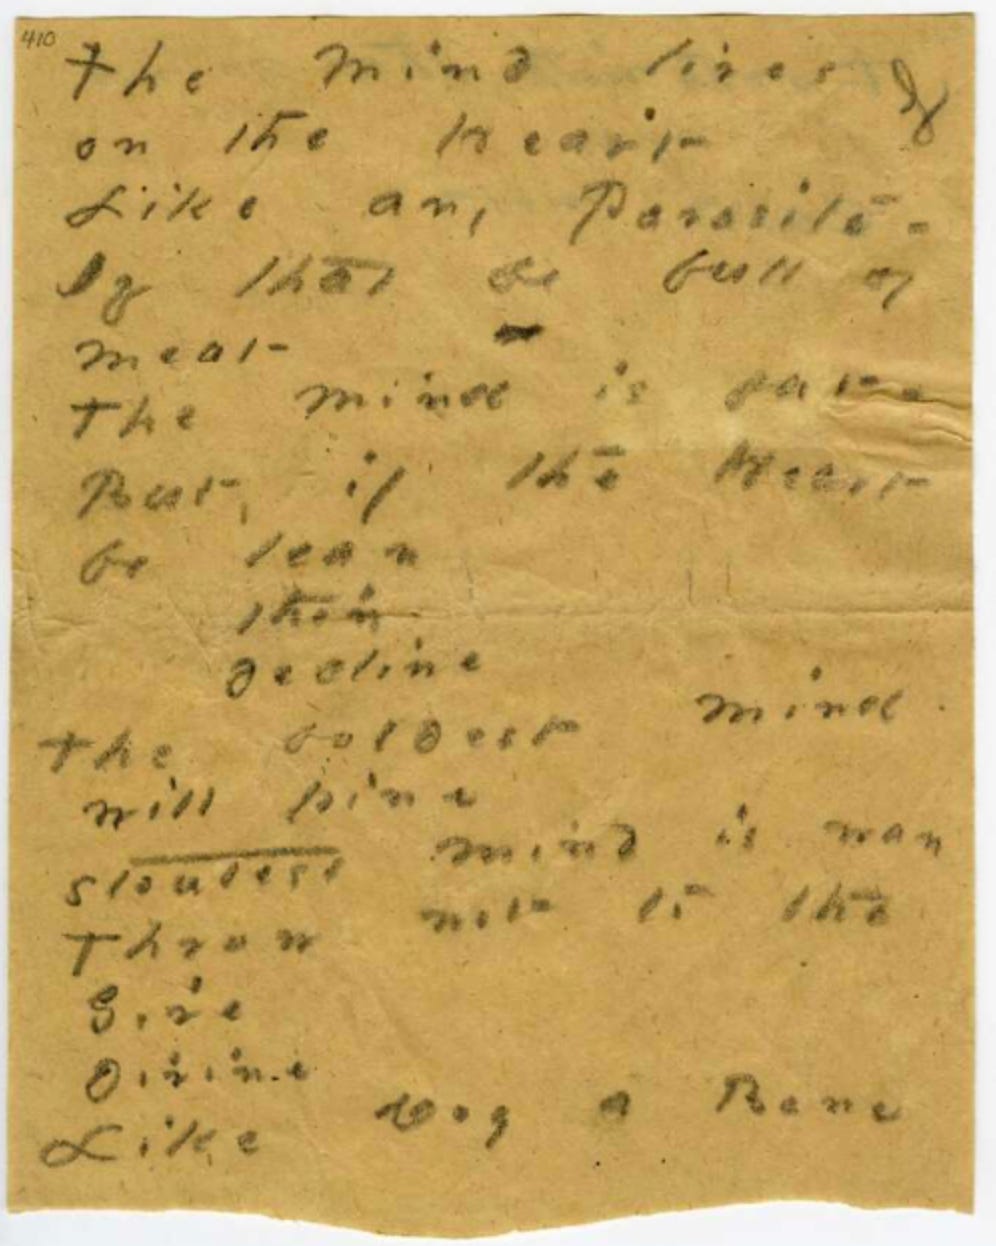 410
The Mind lives
on the Heart
Like any Parasite -
If that be full of
meat
The mind is fat -
But, if the Heart
be lean
thin
decline
The boldest mind
will pine
stoutest mind is wan
Throw not to the
Give
Divine
Like Dog a Bone